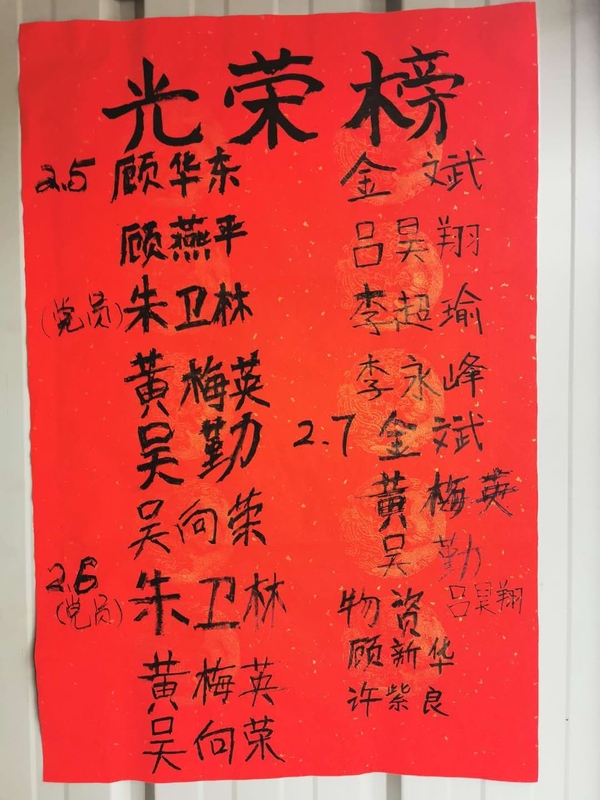 光荣榜
2.5 顾华东
顾燕平
(党员)朱卫林
黄梅英
吴勤
吴向荣
2.6
(党员)朱卫林
黄梅英
吴向荣
金斌
吕昊翔
李超瑜
李永峰
2.7 金斌
黄梅英
吴勤
吕昊翔
物资
顾新华
许紫良